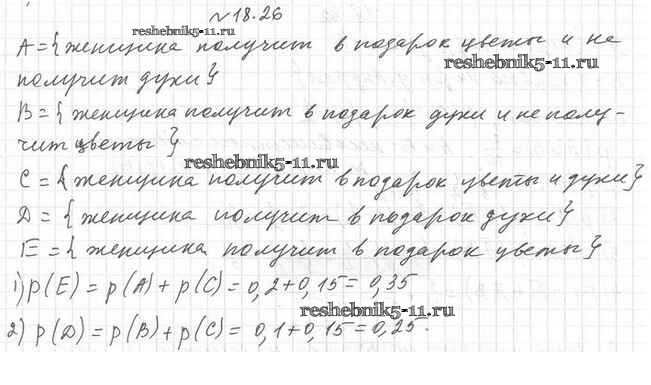 №18.26
reshebnik5-11.ru
A={женщина получит в подарок цветы и не
reshebnik5-11.ru
получит духи}
B={женщина получит в подарок духи и не полу-
чит цветы}
reshebnik5-11.ru
C={женщина получит в подарок цветы и духи}
D={женщина получит в подарок духи}
E={женщина получит в подарок цветы}
1) p(E)=p(A)+p(C)=0,2+0,15=0,35
reshebnik5-11.ru
2) p(D)=p(B)+p(C)=0,1+0,15=0,25.